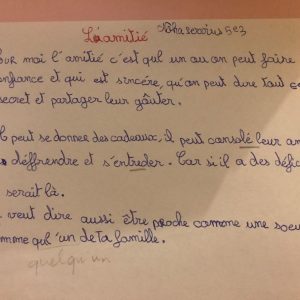 L'amitié
5e3
our moi l'amitié c'est qu'l un au on peut faire
onfiance et qui est sincére, qu'on peut dire tout
secret et partager leur goûter.
l peut se donne des cadeaux, il peut consolé leur am
déffrendre et s'entruder. Car si il a des défic
serait là.
veut dire aussi être proche comme une soeu
mme quel'un de ta famille.
quelqu'un